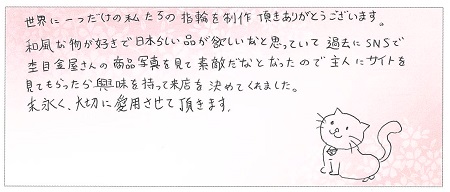 世界に一つだけの私たちの指輪を制作頂きありがとうございます。
和風な物が好きで日本らしい品が欲しいなと思っていて過去にSNSで
杢目金屋さんの商品写真を見て素敵だなとなったので主人にサイトを
見てもらったら興味を持って来店を決めてくれました。
末永く、大切に愛用させて頂きます。